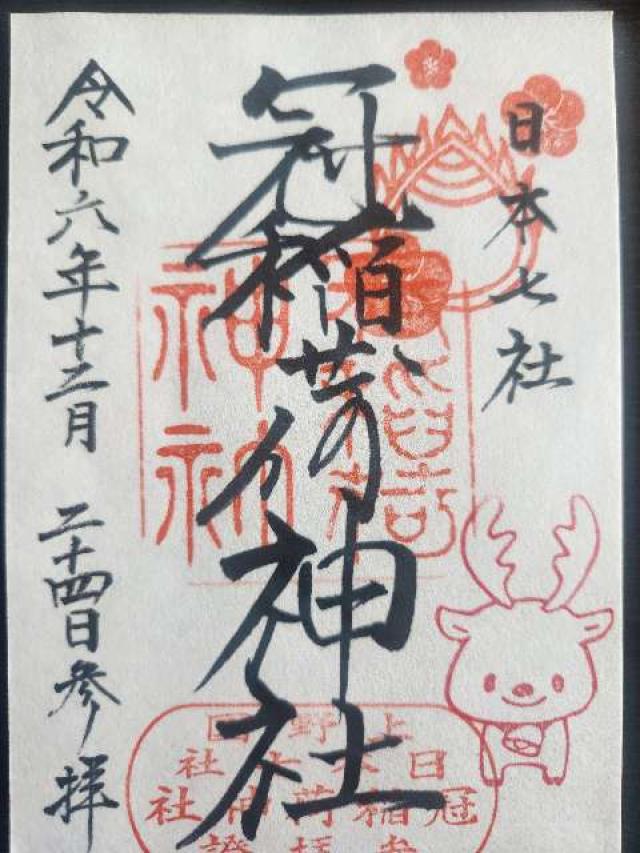 日本七社
冠稲荷神社
令和六年十二月 二十四日参拝
上野国
日本七社
冠稲荷神社